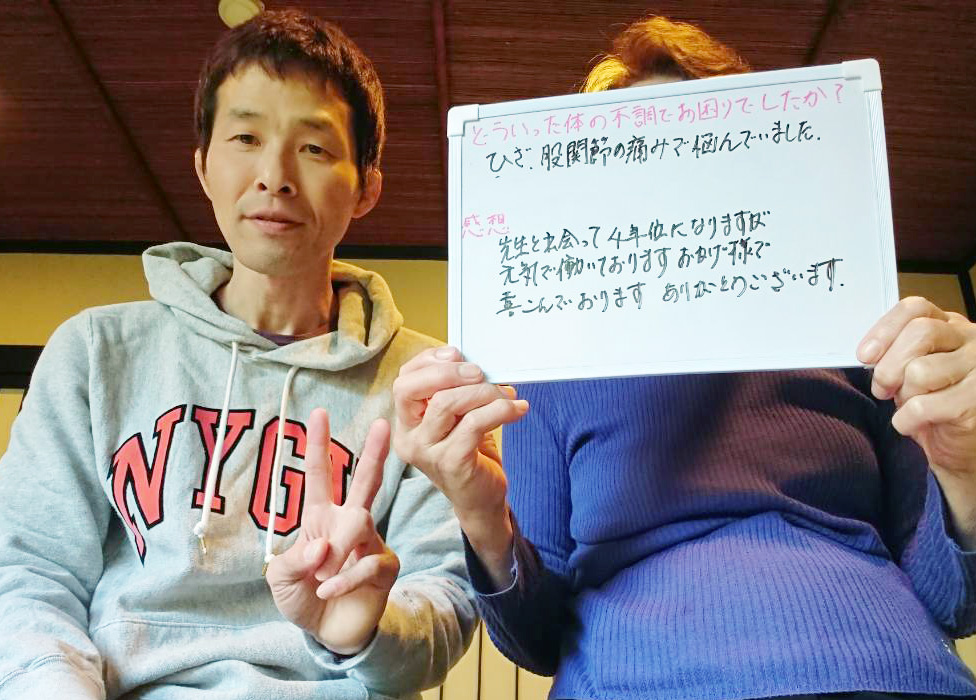 どういった体の不調でお困りでしたか?
ひざ、股関節の痛みで悩んでいました.
感想
先生と出会って4年位になりますが
元気で働いております おかげ様で
喜こんでおります ありがとうございます.
NYGU